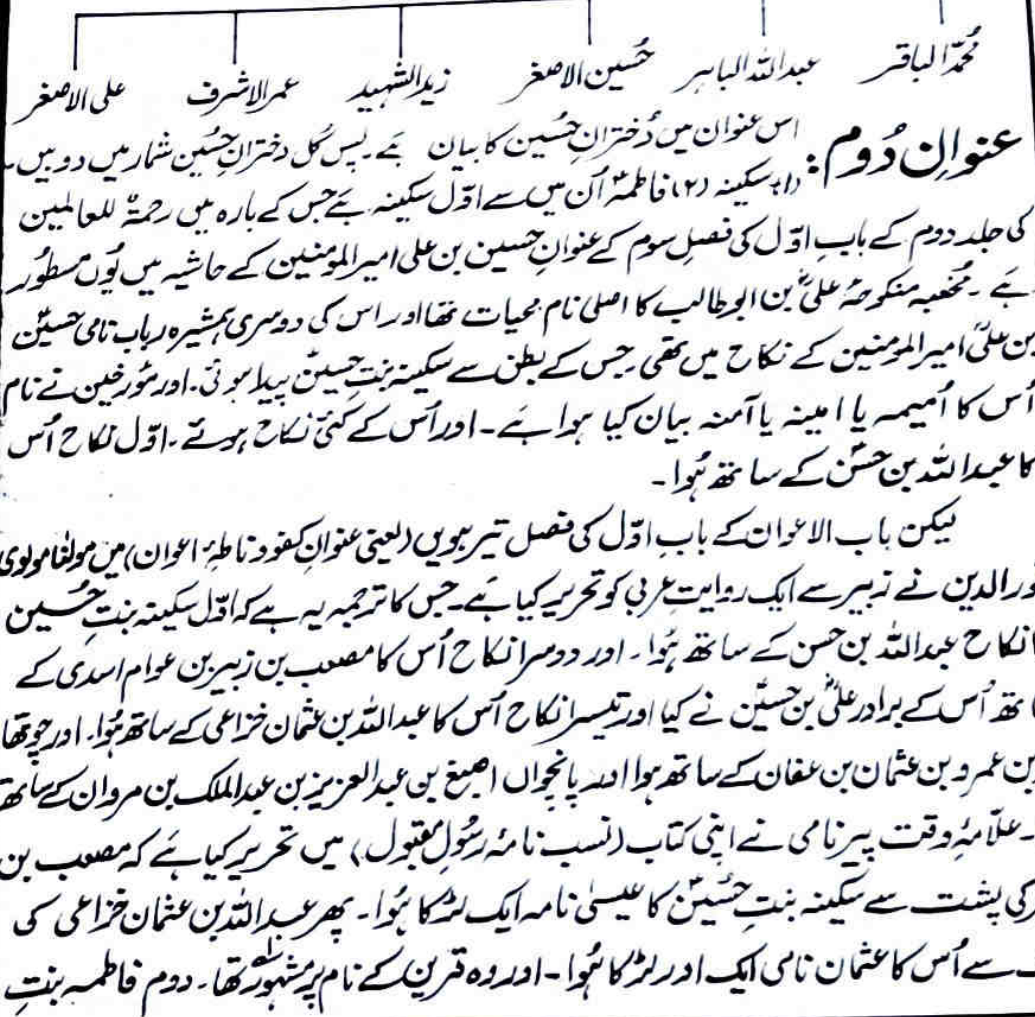 محمد الباقر عبداللہ الباہر حسین الاصغر زید الشہید عمر الاشرف علی الاصغر
عنوانِ دُوم: اس عنوان میں دُخترانِ حُسین کا بیان ہے۔ پس کُل دخترانِ حُسین شمار میں دو ہیں۔
(۱) سکینہ (۲) فاطمہؓ اُن میں سے اوّل سکینہ ہے جس کے بارہ میں رحمۃ للعالمین
کی جلد دوم کے باب اوّل کی فصل سوم کے عنوانِ حسین بن علی امیر المومنین کے حاشیہ میں یُوں مسطُور
ہے۔ مخبہ منکوحۂ علیؓ بن ابو طالب کا اصلی نام محیات تھا اور اس کی دوسری ہمشیرہ رباب نامی حسینؓ
بن علیؓ امیر المومنین کے نکاح میں تھی جس کے بطن سے سکینہ بنتِ حسینؓ پیدا ہوئی۔ اور مؤرخین نے نام
اُس کا اُمیمہ یا امینہ یا آمنہ بیان کیا ہوا ہے۔ اور اُس کے کئی نکاح ہوئے۔ اوّل نکاح اُس
کا عبداللہ بن حسنؓ کے ساتھ ہُوا۔
لیکن باب الاعوان کے باب اوّل کی فصل تیرھویں (یعنی عنوان کفو و ناطہ اعوان) میں مولٰنا مولوی
نے زبیر سے ایک روایتِ عربی کو تحریر کیا ہے۔ جس کا ترجمہ یہ ہے کہ اوّل سکینہ بنتِ حُسین
نکاح عبداللہ بن حسن کے ساتھ ہُوا۔ اور دوسرا نکاح اُس کا مصعب بن زبیر بن عوام اسدی کے
اُس کے برادر علیؓ بن حسینؓ نے کیا اور تیسرا نکاح اُس کا عبداللہ بن عثمان خزاعی کے ساتھ ہُوا۔ اور چوتھا
بن عمرو بن عثمان بن عفان کے ساتھ ہوا اور پانچواں اصبغ بن عبدالعزیز بن عبدالملک بن مروان کے ساتھ
علّامہِ وقت پیر نامی نے اپنی کتاب (نسب نامہ رسُولِ مقبول) میں تحریر کیا ہے کہ مصعب بن
کی پشت سے سکینہ بنتِ حُسینؓ کا عیسیٰ نامہ ایک لڑکا ہُوا۔ پھر عبداللہ بن عثمان خزاعی کی
سے اُس کا عثمان نامی ایک اور لڑکا ہُوا۔ اور وہ قرین کے نام پر مشہور تھا۔ دوم فاطمہ بنتِ